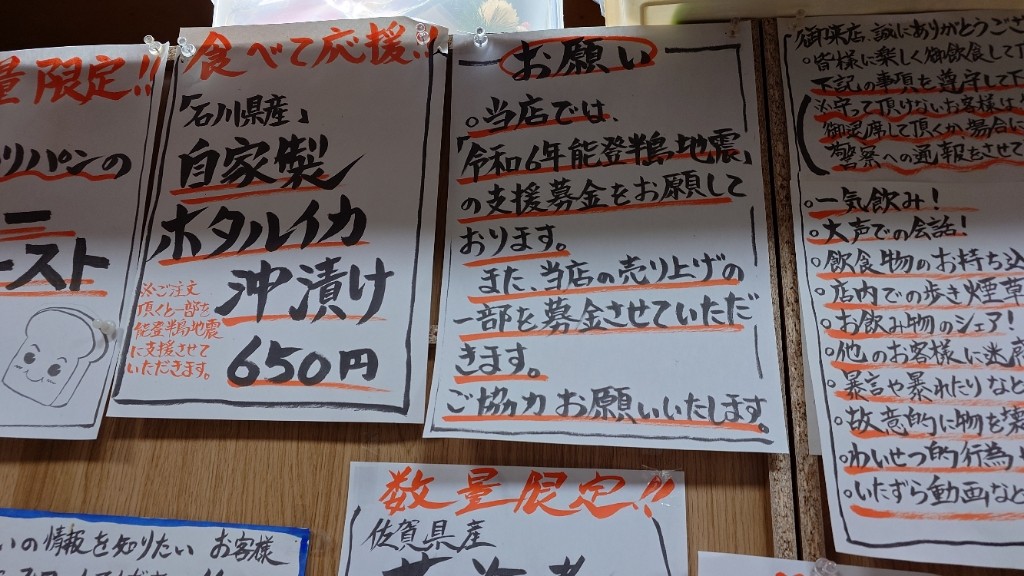 量限定!!
リパンの
ースト
食べて応援!!
「石川県産」
自家製
ホタルイカ
沖漬け
※ご注文
頂くと一部を
能登半島地震
に支援させて
いただきます。
650円
お願い
。当店では、
「令和6年能登半島地震」
の支援募金をお願いして
おります。
また、当店の売り上げの
一部を募金させていただ
きます。
ご協力お願いいたします。
御来店、誠にありがとうござ
。皆様に楽しく御飲食して下
下記の事項を遵守して下
(必守って頂けないお客様は
御退席して頂くか、場合に
警察への通報をさせて
。一気飲み!
。大声での会話!
。飲食物のお持ち込
。店内での歩き煙草
。お飲み物のシェア!
。他のお客様に迷惑
。暴言や暴れたりなど
。故意的に物を
。わいせつ的行為
。いたずら動画など
数量限定!!
佐賀県産
いの情報を知りたいお客様